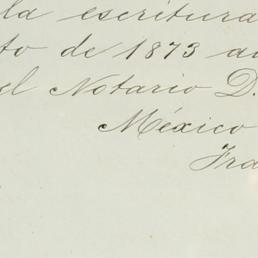 la escritura
to de 1873 a
el Notario D.
México
Fra